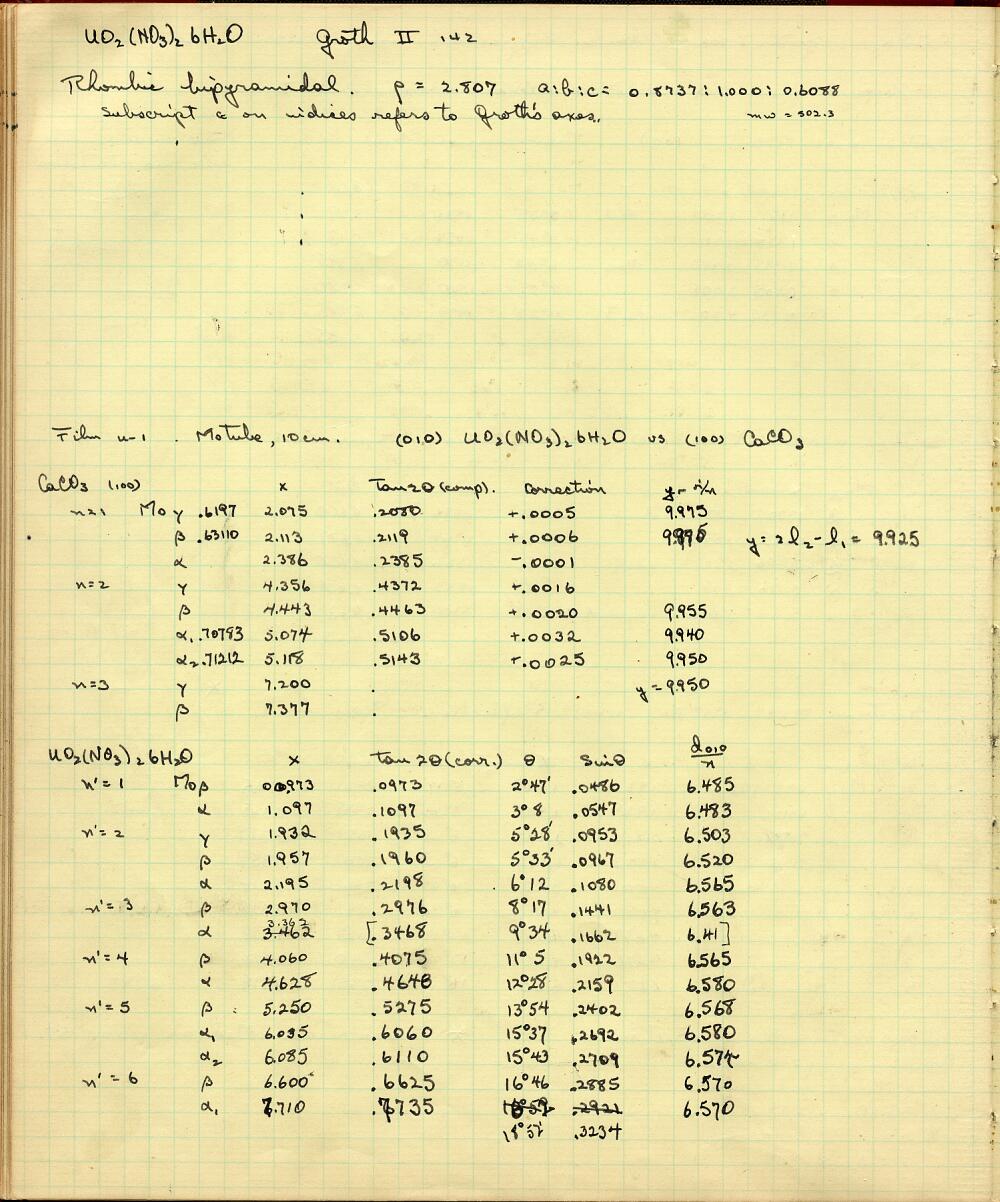 UO2(NO3)2 6H2O Groth II 142
Rhombic bipyramidal. ρ = 2.807 a:b:c = 0.8737 : 1.000 : 0.6088
Subscript G on indices refers to Groth's axes. mw = 502.3
Film u-1. Mo tube, 10 cm. (010) UO2(NO3)2 6H2O vs (100) CaCO3
CaCO3 (100) x Tan 2θ (comp). correction y = x/n
n=1 Mo γ .6197 2.075 .2080 +.0005 9.975
β .63110 2.113 .2119 +.0006 y = 2l2 - l1 = 9.925
α 2.386 .2385 -.0001
n=2 γ 4.356 .4372 +.0016
β 4.443 .4463 +.0020 9.955
α1 .70783 5.074 .5106 +.0032 9.940
α2 .71212 5.118 .5143 +.0025 9.950
n=3 γ 7.200 . y = 9.950
β 7.377 .
UO2(NO3)2 6H2O x tan 2θ (corr.) θ Sin θ d010/n
n'=1 Mo β 0.973 .0973 2°47' .0486 6.485
α 1.097 .1097 3°8 .0547 6.483
n'=2 γ 1.932 .1935 5°28' .0953 6.503
β 1.957 .1960 5°33' .0967 6.520
α 2.195 .2198 6°12 .1080 6.565
n'=3 β 2.970 .2976 8°17 .1441 6.563
3.362
α 3.462 [.3468 9°34 .1662 6.41]
n'=4 β 4.060 .4075 11°5 .1922 6.565
α 4.628 .4648 12°28 .2159 6.580
n'=5 β 5.250 .5275 13°54 .2402 6.568
α1 6.035 .6060 15°37 .2692 6.580
α2 6.085 .6110 15°43 .2709 6.574
n'=6 β 6.600 .6625 16°46 .2885 6.570
α1 7.710 .7735 16°59 .2921 6.570
18°51' .3234